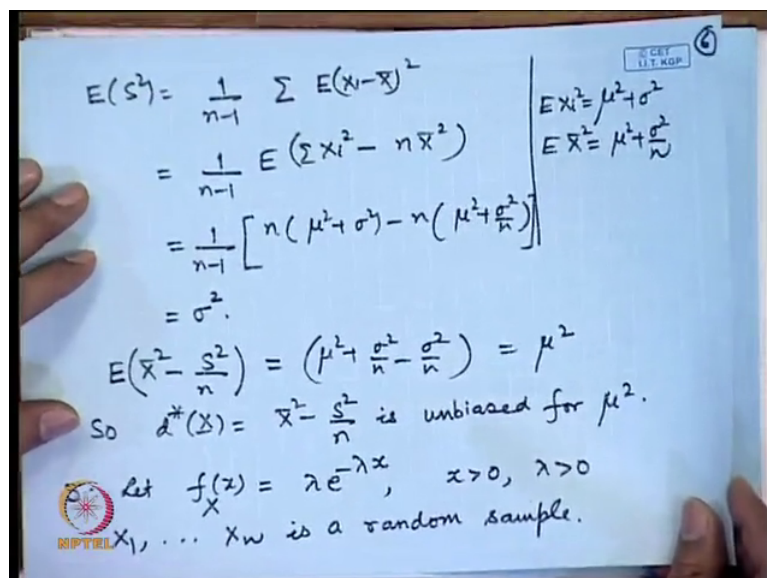 © CET
I.I.T. KGP
6
E(S²) = 1/(n-1) Σ E(xi - x̄)²
E xi² = μ² + σ²
= 1/(n-1) E(Σ xi² - n x̄²)
E x̄² = μ² + σ²/n
= 1/(n-1) [n(μ² + σ²) - n(μ² + σ²/n)]
= σ².
E(x̄² - S²/n) = (μ² + σ²/n - σ²/n) = μ²
So d*(X) = x̄² - S²/n is unbiased for μ².
Let f_X(x) = λ e^{-λx}, x>0, λ>0
X1, ... Xn is a random sample.
NPTEL